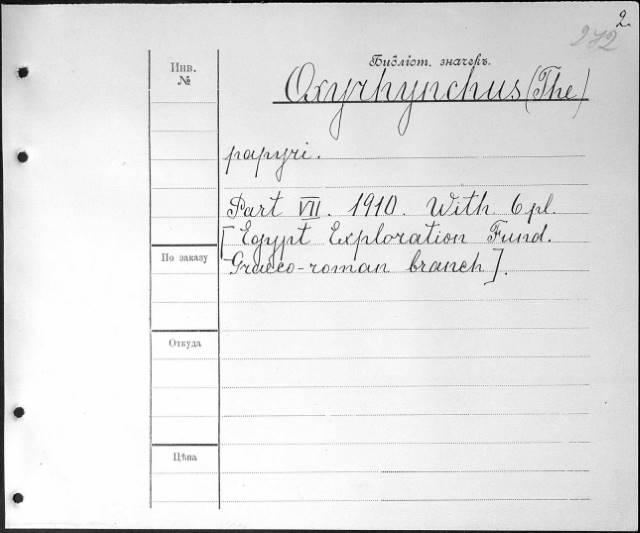 2.
272
Библіот. значекъ.
Инв.
№
Oxyrhynchus (The)
papyri.
Part VII. 1910. With 6 pl.
[Egypt Exploration Fund.
Graeco-roman branch].
По заказу
Откуда
Цѣна